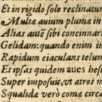 Et in rigido solo reclinatur
Multa auium pluma in
Alias autē sibi concinnar
Gelidam: quando enim
Rapidum eiaculans telum
Et ipsas quidem aues be
Super imposuit, vt atrio
Squalida verò come circ